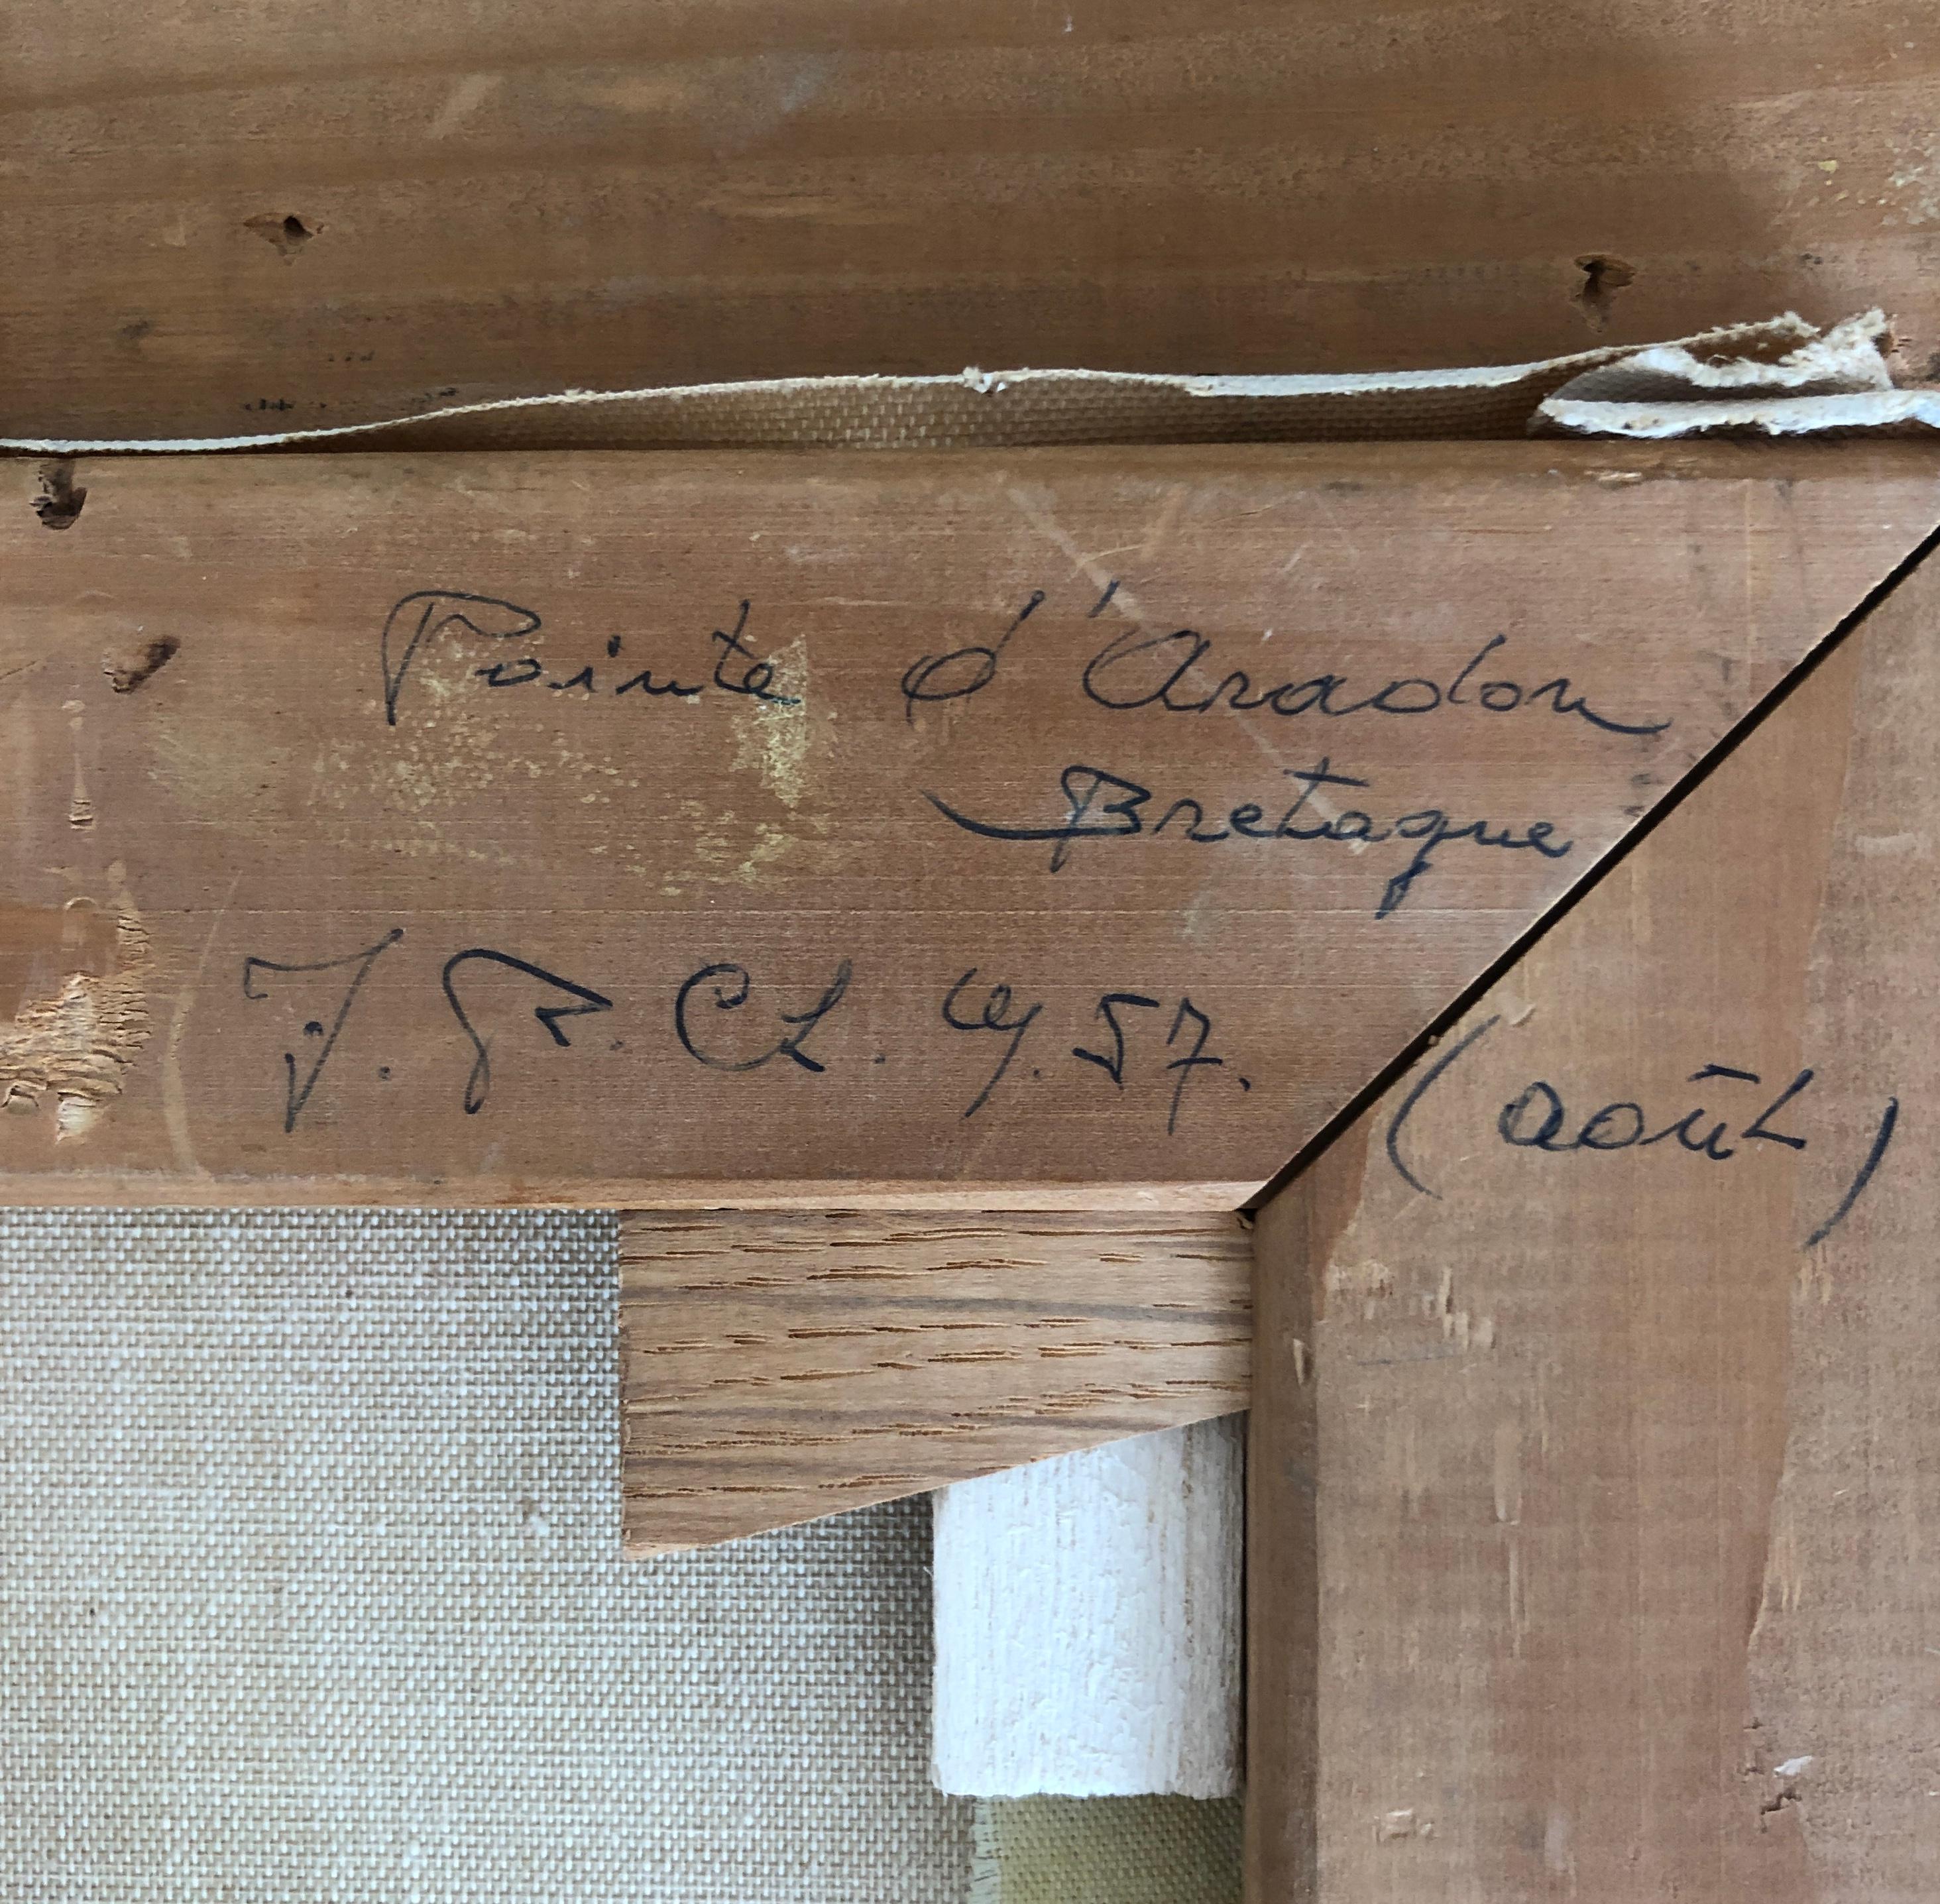 Pointe d'Aradon
Bretagne
J. P. Ch. 57.
(août)